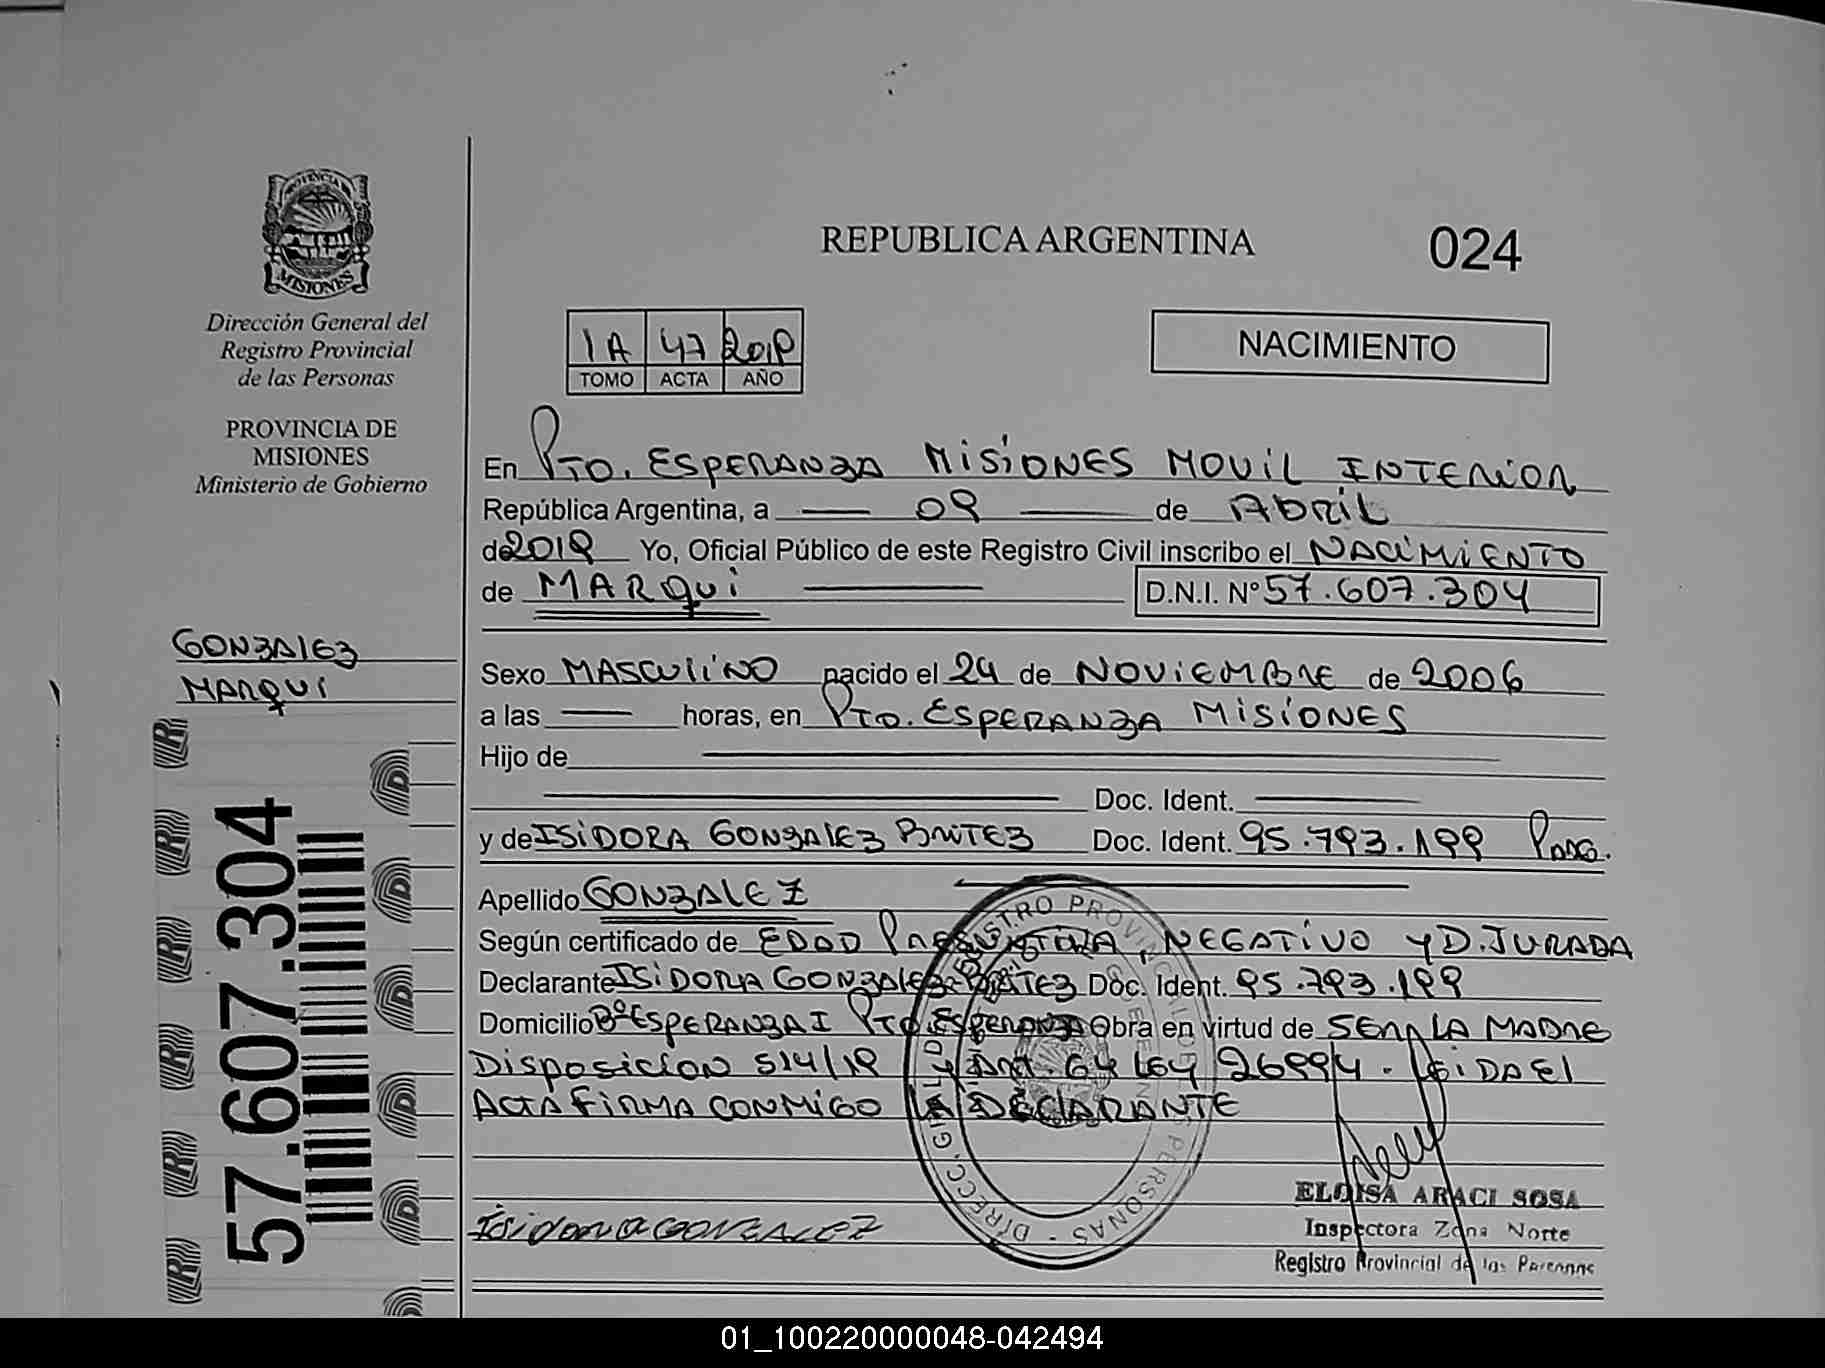 PROVINCIA DE
MISIONES
Dirección General del
Registro Provincial
de las Personas
PROVINCIA DE
MISIONES
Ministerio de Gobierno
GONZALEZ
MARQUI
57.607.304
REPUBLICA ARGENTINA
024
1A 47 2019
TOMO ACTA AÑO
NACIMIENTO
En PTO. ESPERANZA MISIONES MOVIL INTERIOR
República Argentina, a 09 de ABRIL
de 2019 Yo, Oficial Público de este Registro Civil inscribo el NACIMIENTO
de MARQUI D.N.I. Nº 57.607.304
Sexo MASCULINO nacido el 24 de NOVIEMBRE de 2006
a las horas, en PTO. ESPERANZA MISIONES
Hijo de
Doc. Ident.
y de ISIDORA GONZALEZ BRITEZ Doc. Ident. 95.793.199 PARAG.
Apellido GONZALEZ
Según certificado de EDAD PRESUNTIVA, NEGATIVO Y D. JURADA
Declarante ISIDORA GONZALEZ BRITEZ Doc. Ident. 95.793.199
Domicilio Bº ESPERANZA I PTO. ESPERANZA Obra en virtud de SER LA MADRE
DISPOSICION 514/19 Y ART. 64 LEY 26994. LEIDA EL
ACTA FIRMA CONMIGO LA DECLARANTE
DIRECC. GRAL. DEL REGISTRO PROVINCIAL DE LAS PERSONAS
ISIDORA GONZALEZ
ELOISA ARACI SOSA
Inspectora Zona Norte
Registro Provincial de las Personas
01_100220000048-042494